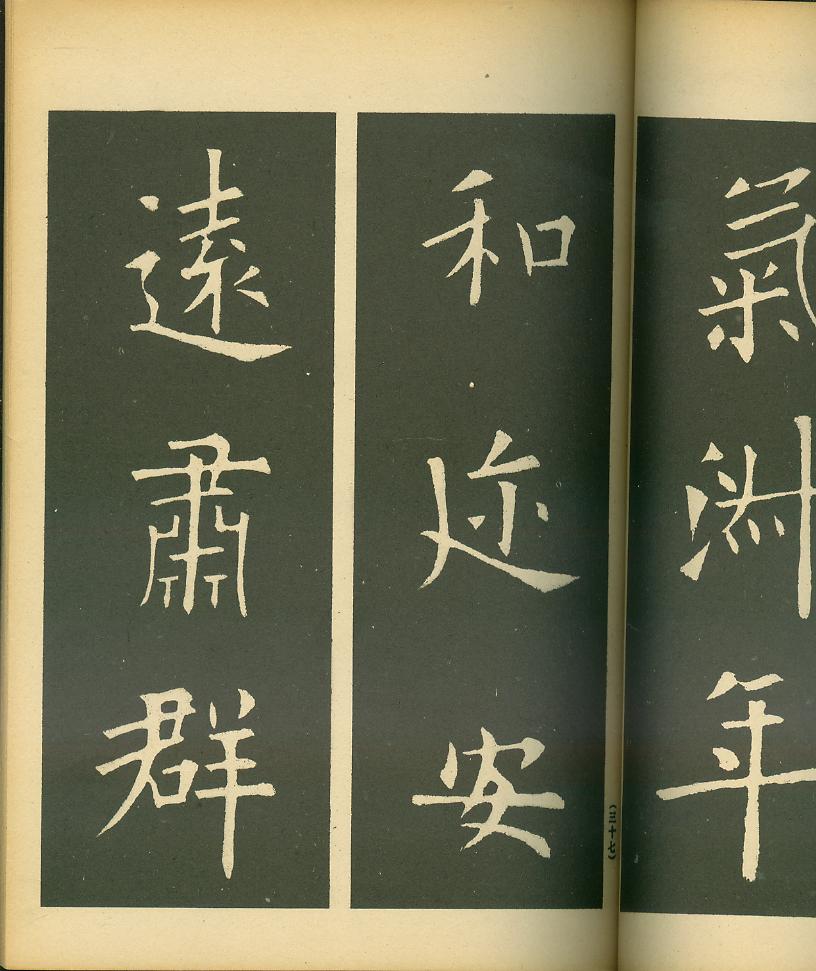 氣淑年
和迩安
遠肅群
(三十七)